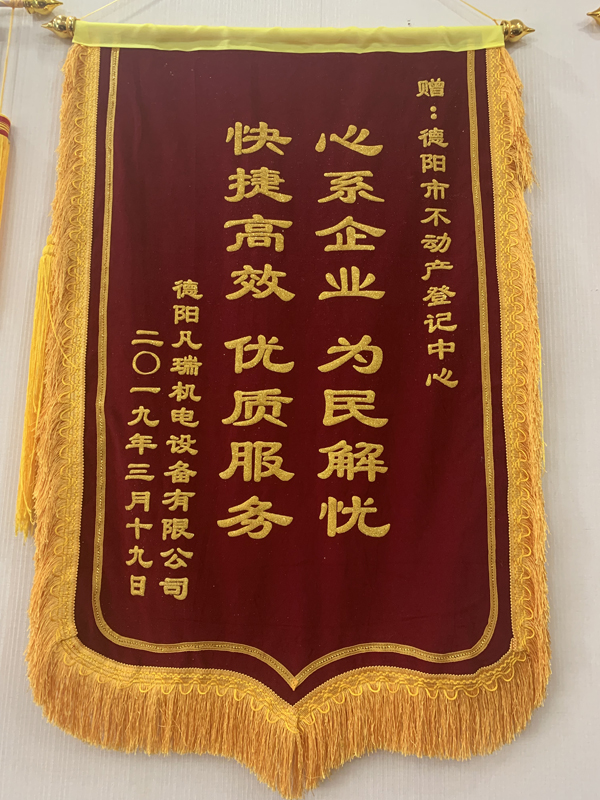 赠：德阳市不动产登记中心
心系企业 为民解忧
快捷高效 优质服务
德阳凡瑞机电设备有限公司
二〇一九年三月十九日